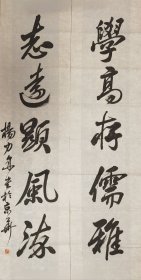 學高存儒雅
志遠顯風流
楊力舟書於京華